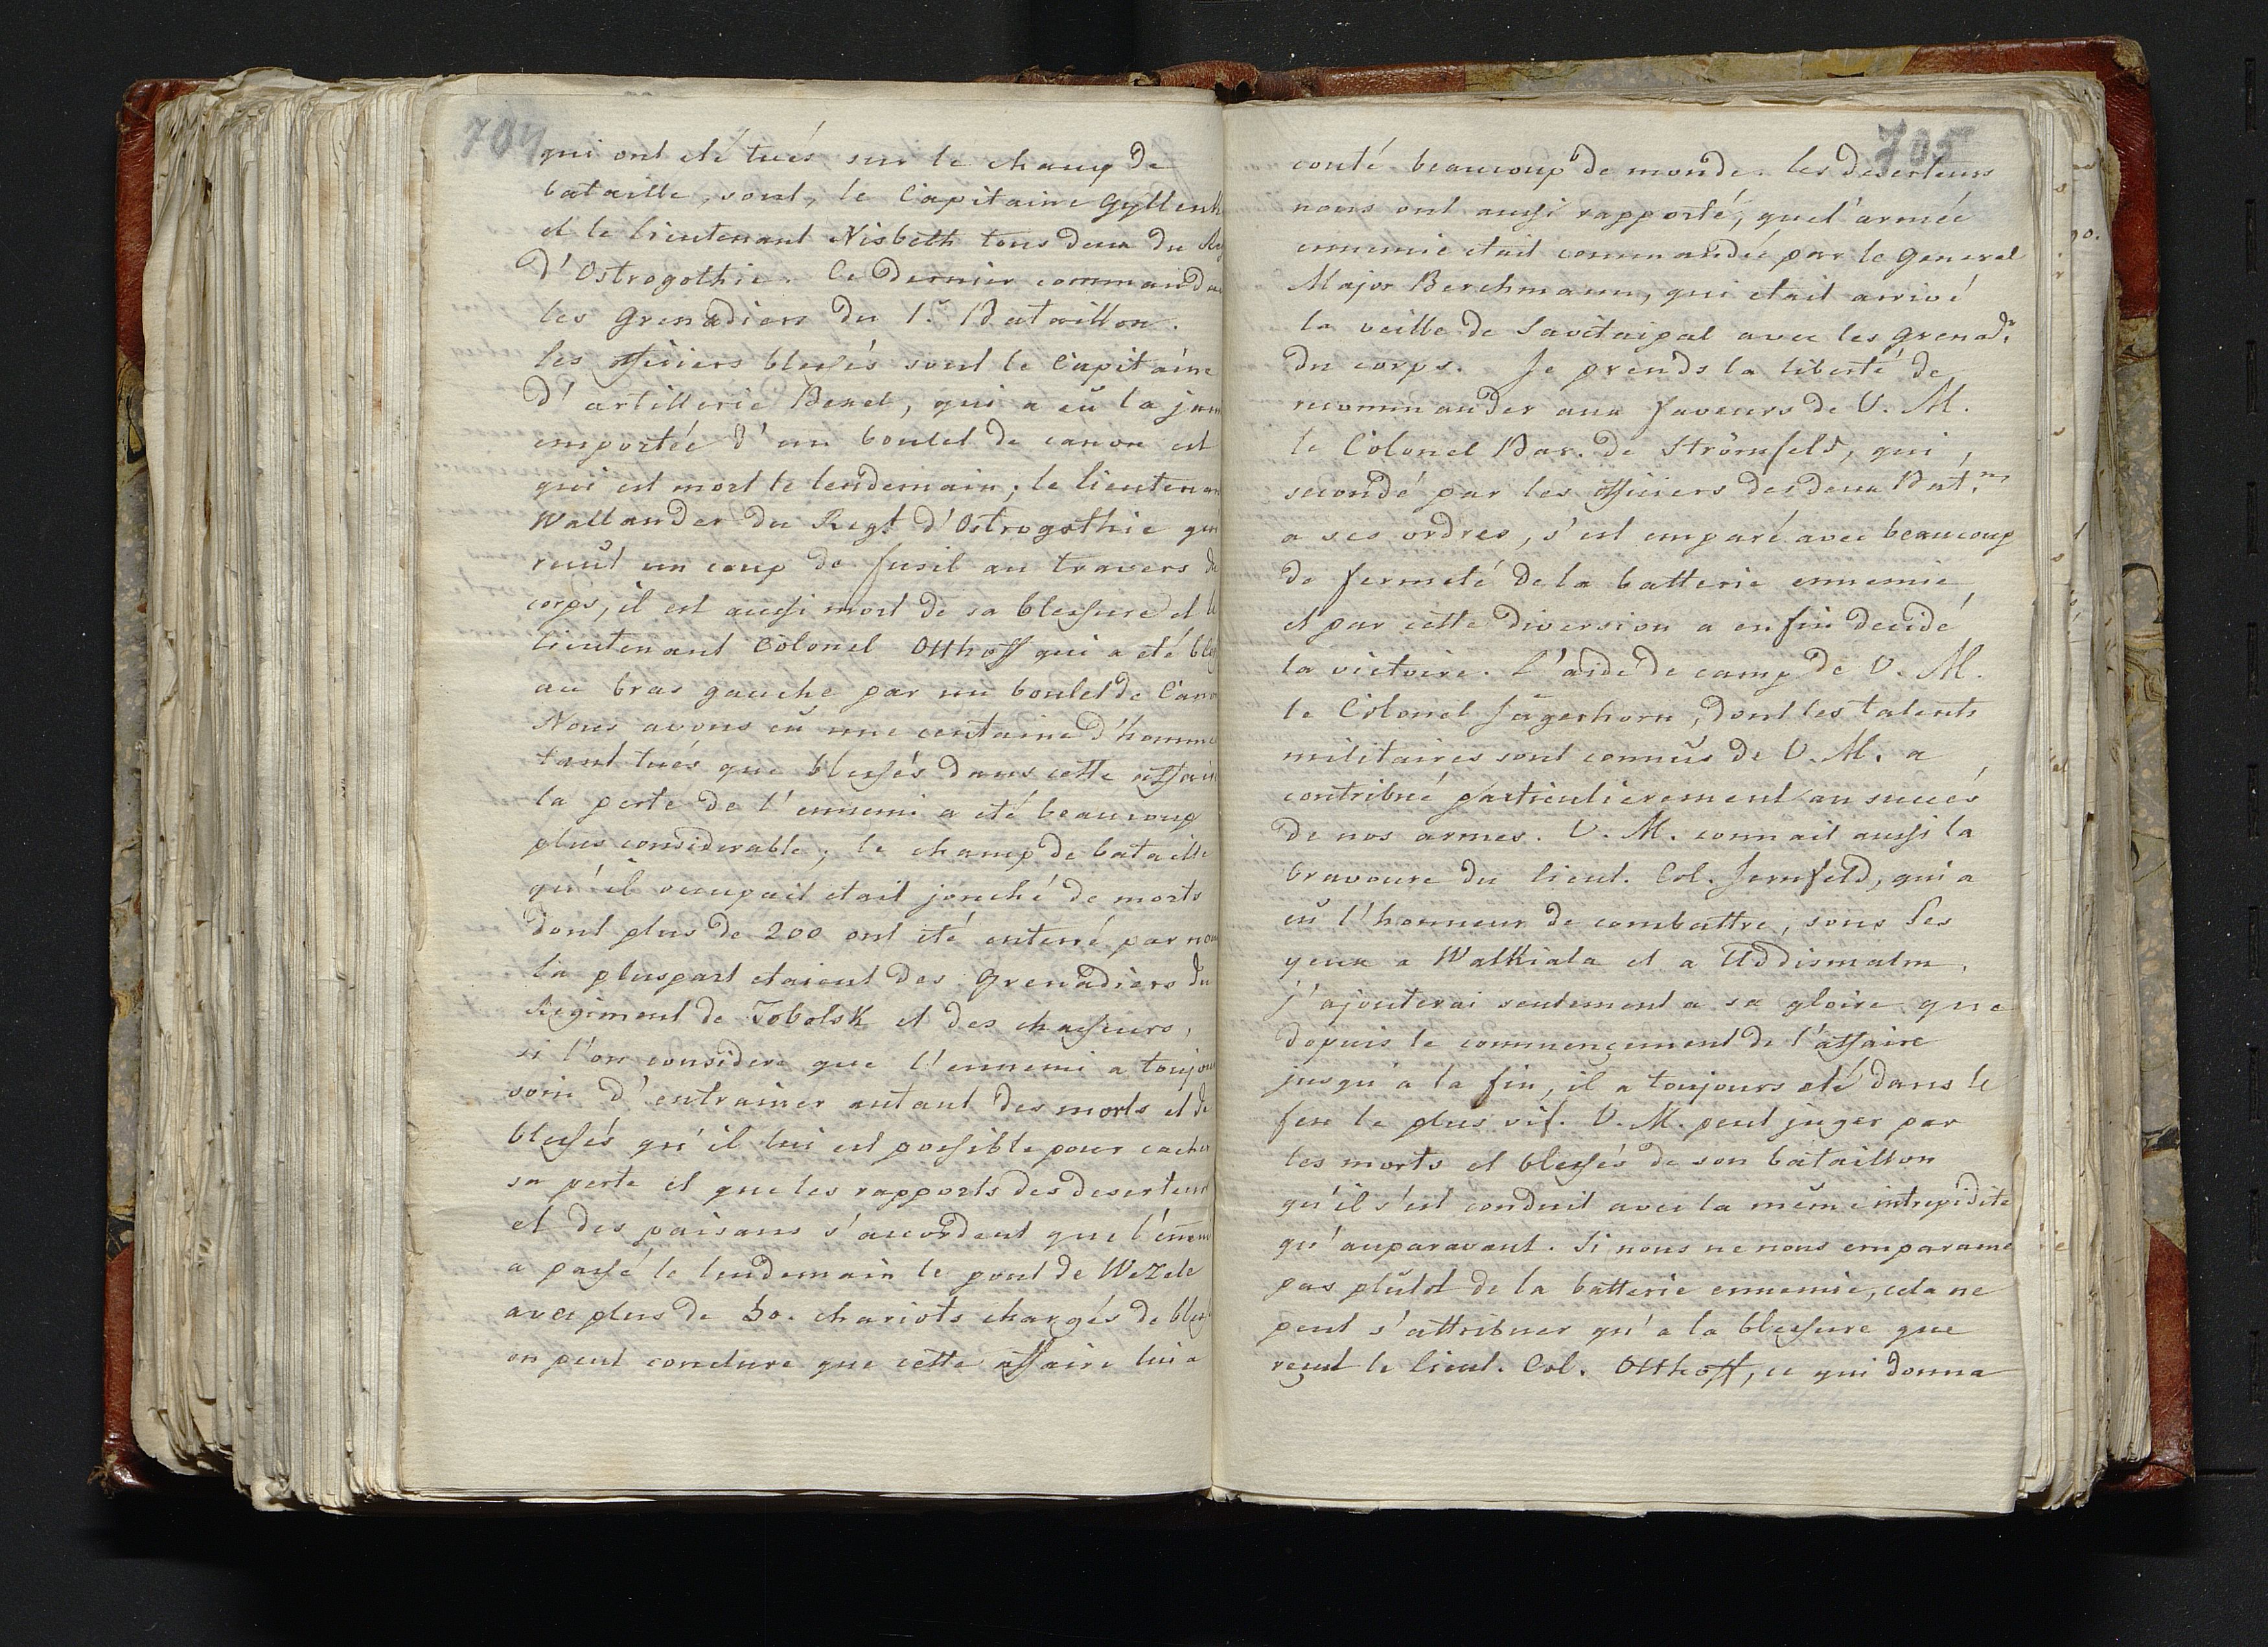 704
qui ont eté tués sur le champ de
bataille, sont, le Capitaine Gyllenh
et le lieutenant Nisbeth tous deux du Reg
d'Ostrogothie. Ce dernier commandai
les Grenadiers du 1.r Bataillon.
les officiers blessés sont le Capitaine
d'artillerie Bexel, qui a eû la jam
emportée d'un boulet de canon et
qui est mort le lendemain; le lieutenan
Wallander du Regt d'Ostrogothie qui
reçut un coup de fusil au travers du
corps, il est aussi mort de sa blessure et le
lieutenant Colonel Otthoff qui a eté bles
au bras gauche par un boulet de Cano
Nous avons eû une centaine d'homme
tant tués que blessés dans cette affair
la perte de l'ennemi a eté beaucoup
plus considerable; le champ de bataille
qu'il occupait etait jonché de morts
dont plus de 200 ont eté enterré par nou
la pluspart etaient des Grenadiers du
Regiment de Tobolsk et des chasseurs,
si l'on considere que l'ennemi a toujour
soin d'entrainer autant des morts et de
blessés qu'il lui est possible pour cacher
sa perte et que les rapports des deserteurs
et des paisans s'accordent que l'ennem
a passé le lendemain le pont de Wezele
avec plus de 50. chariots chargés de bless
on peut conclure que cette affaire lui a
705
couté beaucoup de monde. les deserteurs
nous ont aussi rapporté, que l'armée
ennemie etait commandée par le General
Major Berchmann, qui etait arrivé
la veille de Savitaipal avec les Grenad.rs
du corps. Je prends la liberté de
recommander aux faveurs de V. M.
le Colonel Bar. de Strömfeld, qui,
secondé par les officiers des deux Bat.ns
a ses ordres, s'est emparé avec beaucoup
de fermeté de la batterie ennemie
et par cette diversion a enfin decidé
la victoire. L'aide de camp de V. M.
le Colonel Jägerhorn, dont les talents
militaires sont connûs de V. M. a
contribué particulierement au succés
de nos armes. V. M. connait aussi la
bravoure du lieut. Col. Jernfeld, qui a
eû l'honneur de combattre, sous Ses
yeux a Walkiala et a Uddismalm,
j'ajouterai seulement a sa gloire que
depuis le commençement de l'affaire
jusqu'a la fin, il a toujours eté dans le
feu le plus vif. V. M. peut juger par
les morts et blessés de son bataillon
qu'il s'est conduit avec la même intrepidite
qu'auparavant. Si nous ne nous emparame
pas plûtot de la batterie ennemie, cela ne
peut s'attribuer qu'a la blessure que
reçut le lieut. Col. Otthoff, ce qui donna